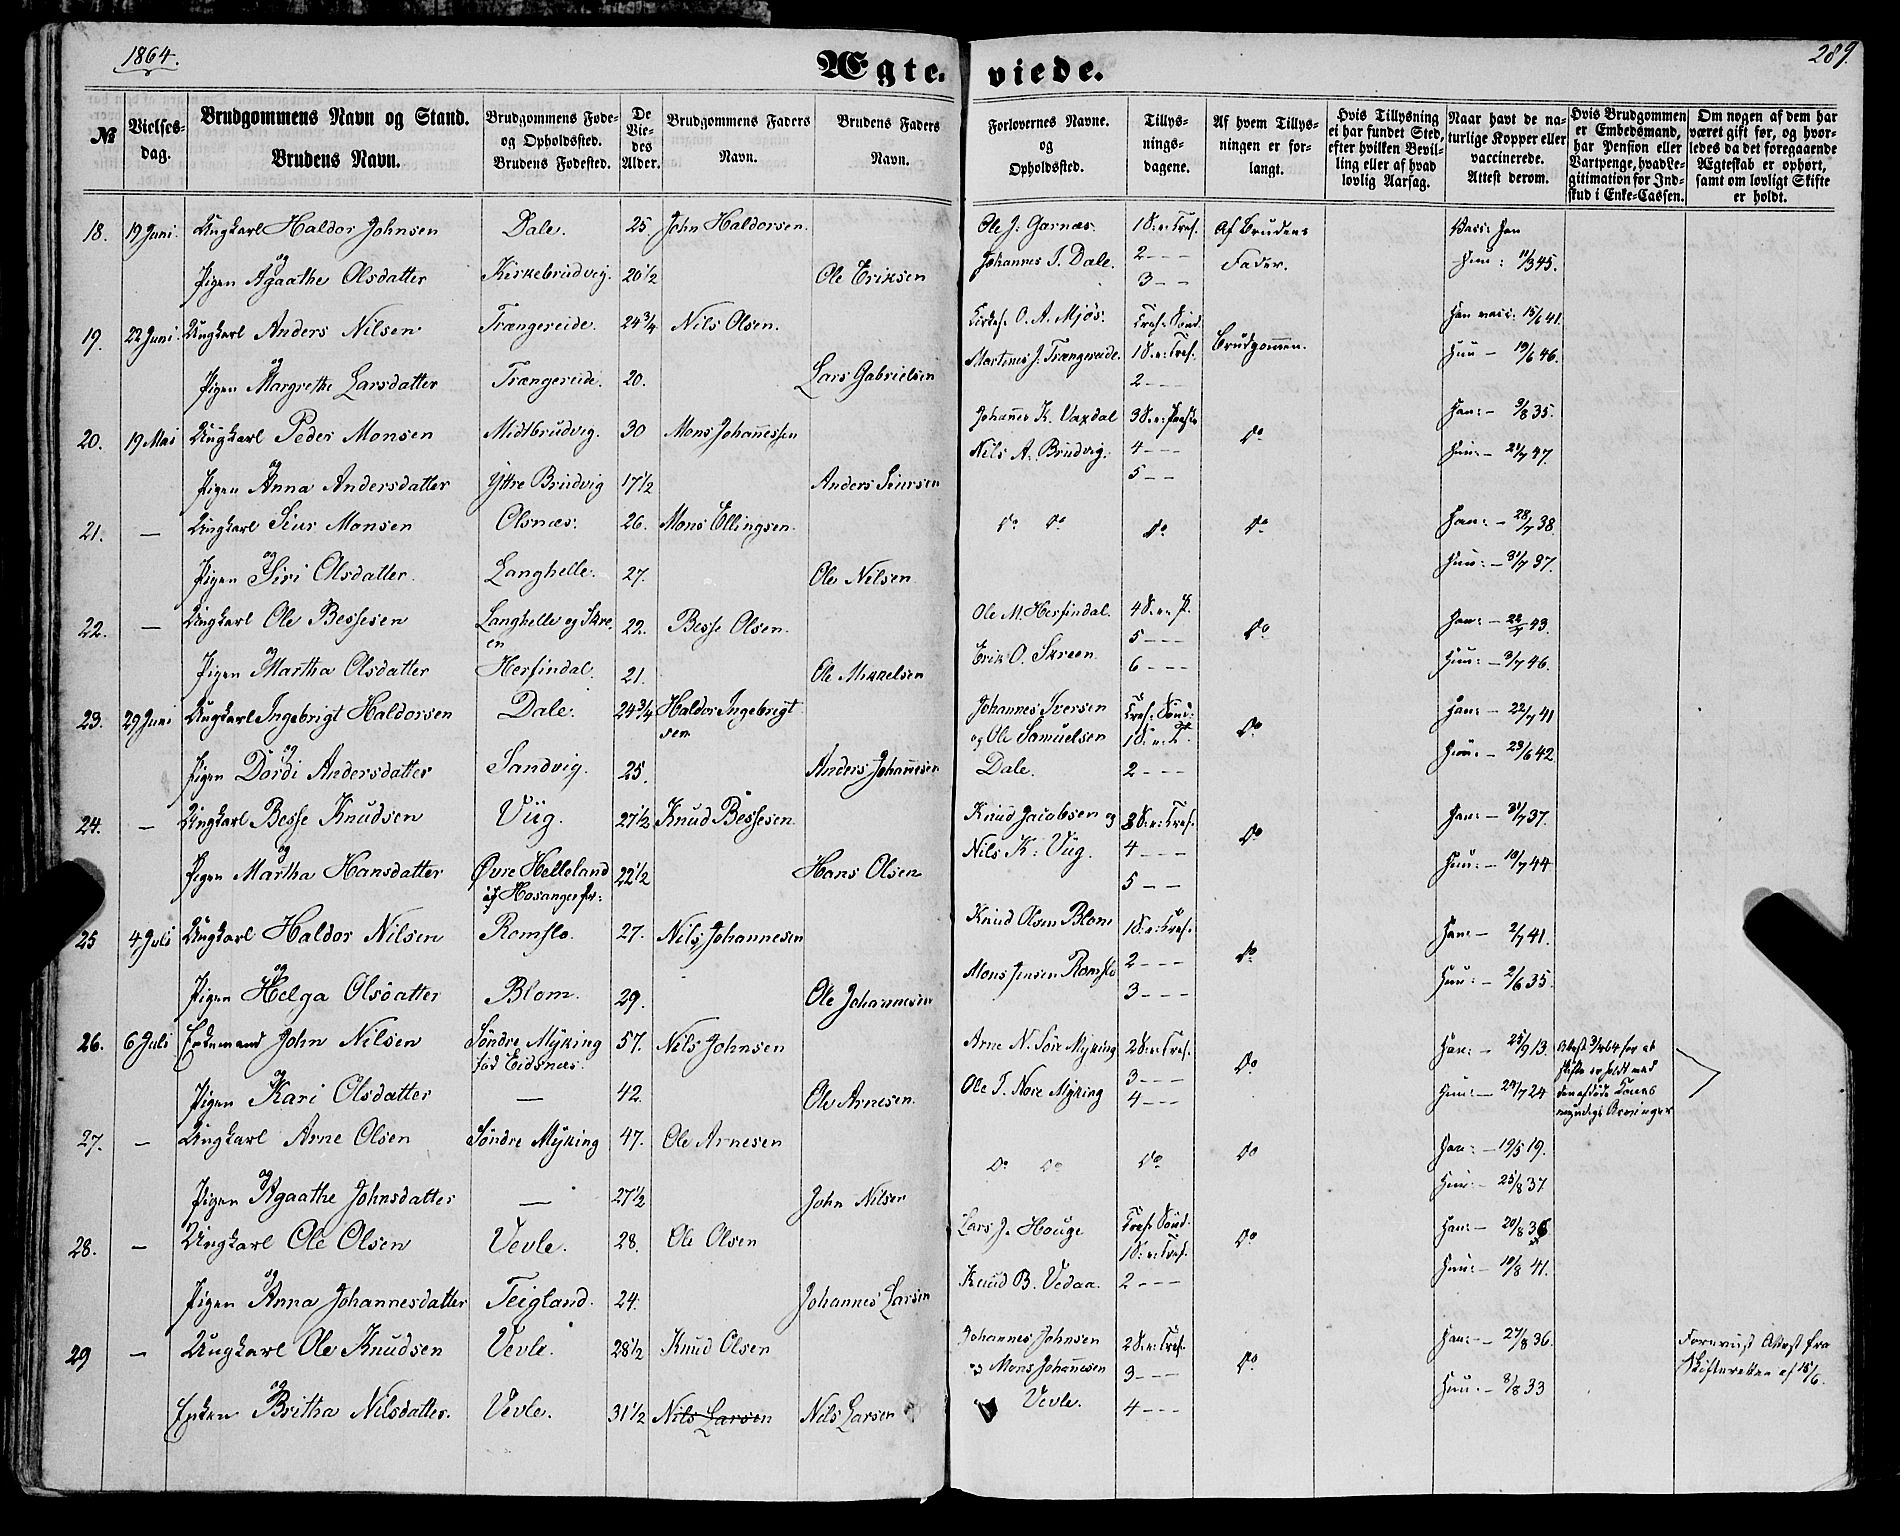 1864.
289.
Ægte. viede.
№
Vielses-
dag.
Brudgommens Navn og Stand.
Brudens Navn.
Brudgommens Føde-
og Opholdssted.
Brudens Fødested.
De
Vie-
des
Alder.
Brudgommens Faders
Navn.
Brudens Faders
Navn.
Forlovernes Navne.
og
Opholdssted.
Tillys-
nings-
dagene.
Af hvem Tillys-
ningen er for-
langt.
Hvis Tillysning
ei har fundet Sted,
efter hvilken Bevil-
ling eller af hvad
lovlig Aarsag.
Naar havt de na-
turlige Kopper eller
vaccinerede.
Attest derom.
Hvis Brudgommen
er Embedsmand,
har Pension eller
Vartpenge, hvad Le-
gitimation for Ind-
skud i Enke-Cassen.
Om nogen af dem har
været gift før, og hvor-
ledes da det foregaaende
Ægteskab er ophørt,
samt om lovligt Skifte
er holdt.
18. 19 Juni. Ungkarl Haldor Johnsen Dale. 25. John Haldorsen. Ole J. Garnæs. 1 S. e. Tref. Af Brudens Vacc: Han
og
Pigen Agaathe Olsdatter Kirkebrudvig. 20½ Ole Eriksen Johannes I. Dale. 2 - - - Fader. Hun: 11/3 45.
3 - -
19. 22 Juni. Ungkarl Anders Nilsen Trængereide. 24¾ Nils Olsen. O. A. Mjøs. Tref. Sønd. Brudgommen. Han vacc: 15/6 41.
og
Pigen Margrethe Larsdatter Trængereide. 20. Lars Gabrielsen Martines J. Trængereide. 1 S. e. Tref. Hun - 19/6 46.
2 - - -
20. 19 Mai Ungkarl Peder Monsen Midtbrudvig. 30 Mons Johannessen Johannes K. Vaxdal 3 S. e. Paaske Do Han: - 3/8 35.
og
Pigen Anna Andersdatter Yttre Brudvig 17½ Anders Siursen Nils A. Brudvig. 4 - - - Hun: - 21/7 47.
5 - -
21. — Ungkarl Siur Monsen Olsnæs. 26. Mons Ellingsen. Do Do Do Do Han: - 28/7 38.
og
Pigen Siri Olsdatter. Langhelle. 27. Ole Nilsen Hun: - 31/7 37.
22. — Ungkarl Ole Bessesen Langhelle og Skre- 22. Besse Olsen. Ole M. Herfindal. 4 S. e. P. Do Han: - 22/7 43.
og en
Pigen Martha Olsdatter Herfindal. 21. Ole Mikkelsen Erik O. Skreen. 5 - - - Hun: - 3/7 46.
6 - - -
23. 29 Juni Ungkarl Ingebrigt Haldorsen Dale. 24¾ Haldor Ingebrigt Johannes Iversen Tref. Sønd: Do Han: - 22/7 41
sen og Ole Samuelsen 1 S. e. T.
og
Pigen Dordi Andersdatter Sandvig. 25. Anders Johannesen Dale. 2 - - - Hun: - 23/6 42.
24. — Ungkarl Besse Knudsen Viig. 27½ Knud Bessesen. Knud Jacobsen og 3 S. e. Tref. Do Han: - 31/7 37.
og
Pigen Martha Hansdatter Øvre Helleland 22½ Hans Olsen Nils K. Viig. 4 - - - Hun: - 10/7 44
af Hosanger Pr: 5 - -
25 4 Juli Ungkarl Haldor Nilsen Romslo. 27. Nils Johannesen Knud Olsen Blom 1 S. e. Tref. Do Han: - 2/7 41.
og
Pigen Helga Olsdatter Blom. 29. Ole Johannesen Mons Jensen Romslo 2 - - - Hun: - 2/6 35.
3 - - -
26. 6 Juli Enkemand John Nilsen Søndre Myking 57. Nils Johnsen Arne N. Søre Myking 2 S. e. Tref. Do Han: - 25/9 13. Attest 3/7 64 for at
fød Eidsnæs. Skifte er holdt med
og
Pigen Kari Olsdatter — 42. Ole Arnesen. Ole I. Nore Myking 3 - - - Hun: - 29/7 24 den afdøde Kones
4 - - - myndige Arvinger
27. — Ungkarl Arne Olsen Søndre Myking 47. Ole Arnesen Do Do Do Do Han: - 19/5 19.
og
Pigen Agaathe Johnsdatter — 27½ John Nilsen Hun: - 25/8 37
28. — Ungkarl Ole Olsen Vevle. 28. Ole Olsen Lars J. Houge Tref. Sønd: Do Han: - 20/8 36
1 S. e. Tref.
og
Pigen Anna Johannesdatter Teigland. 24. Johannes Larsen Knud B. Vedaa. 2 - - - Hun: - 10/8 41.
29 — Ungkarl Ole Knudsen Vevle. 28½ Knud Olsen Johannes Johnsen 2 S. e. Tref. Do Han: - 27/8 36. Forevist Attest fra
og Mons Johannesen 3 - - - Skifteretten af 15/6.
og
Enken Britha Nilsdatter. Vevle. 31½ Nils Larsen Nils Larsen Vevle. 4 - - - Hun. - 8/8 33